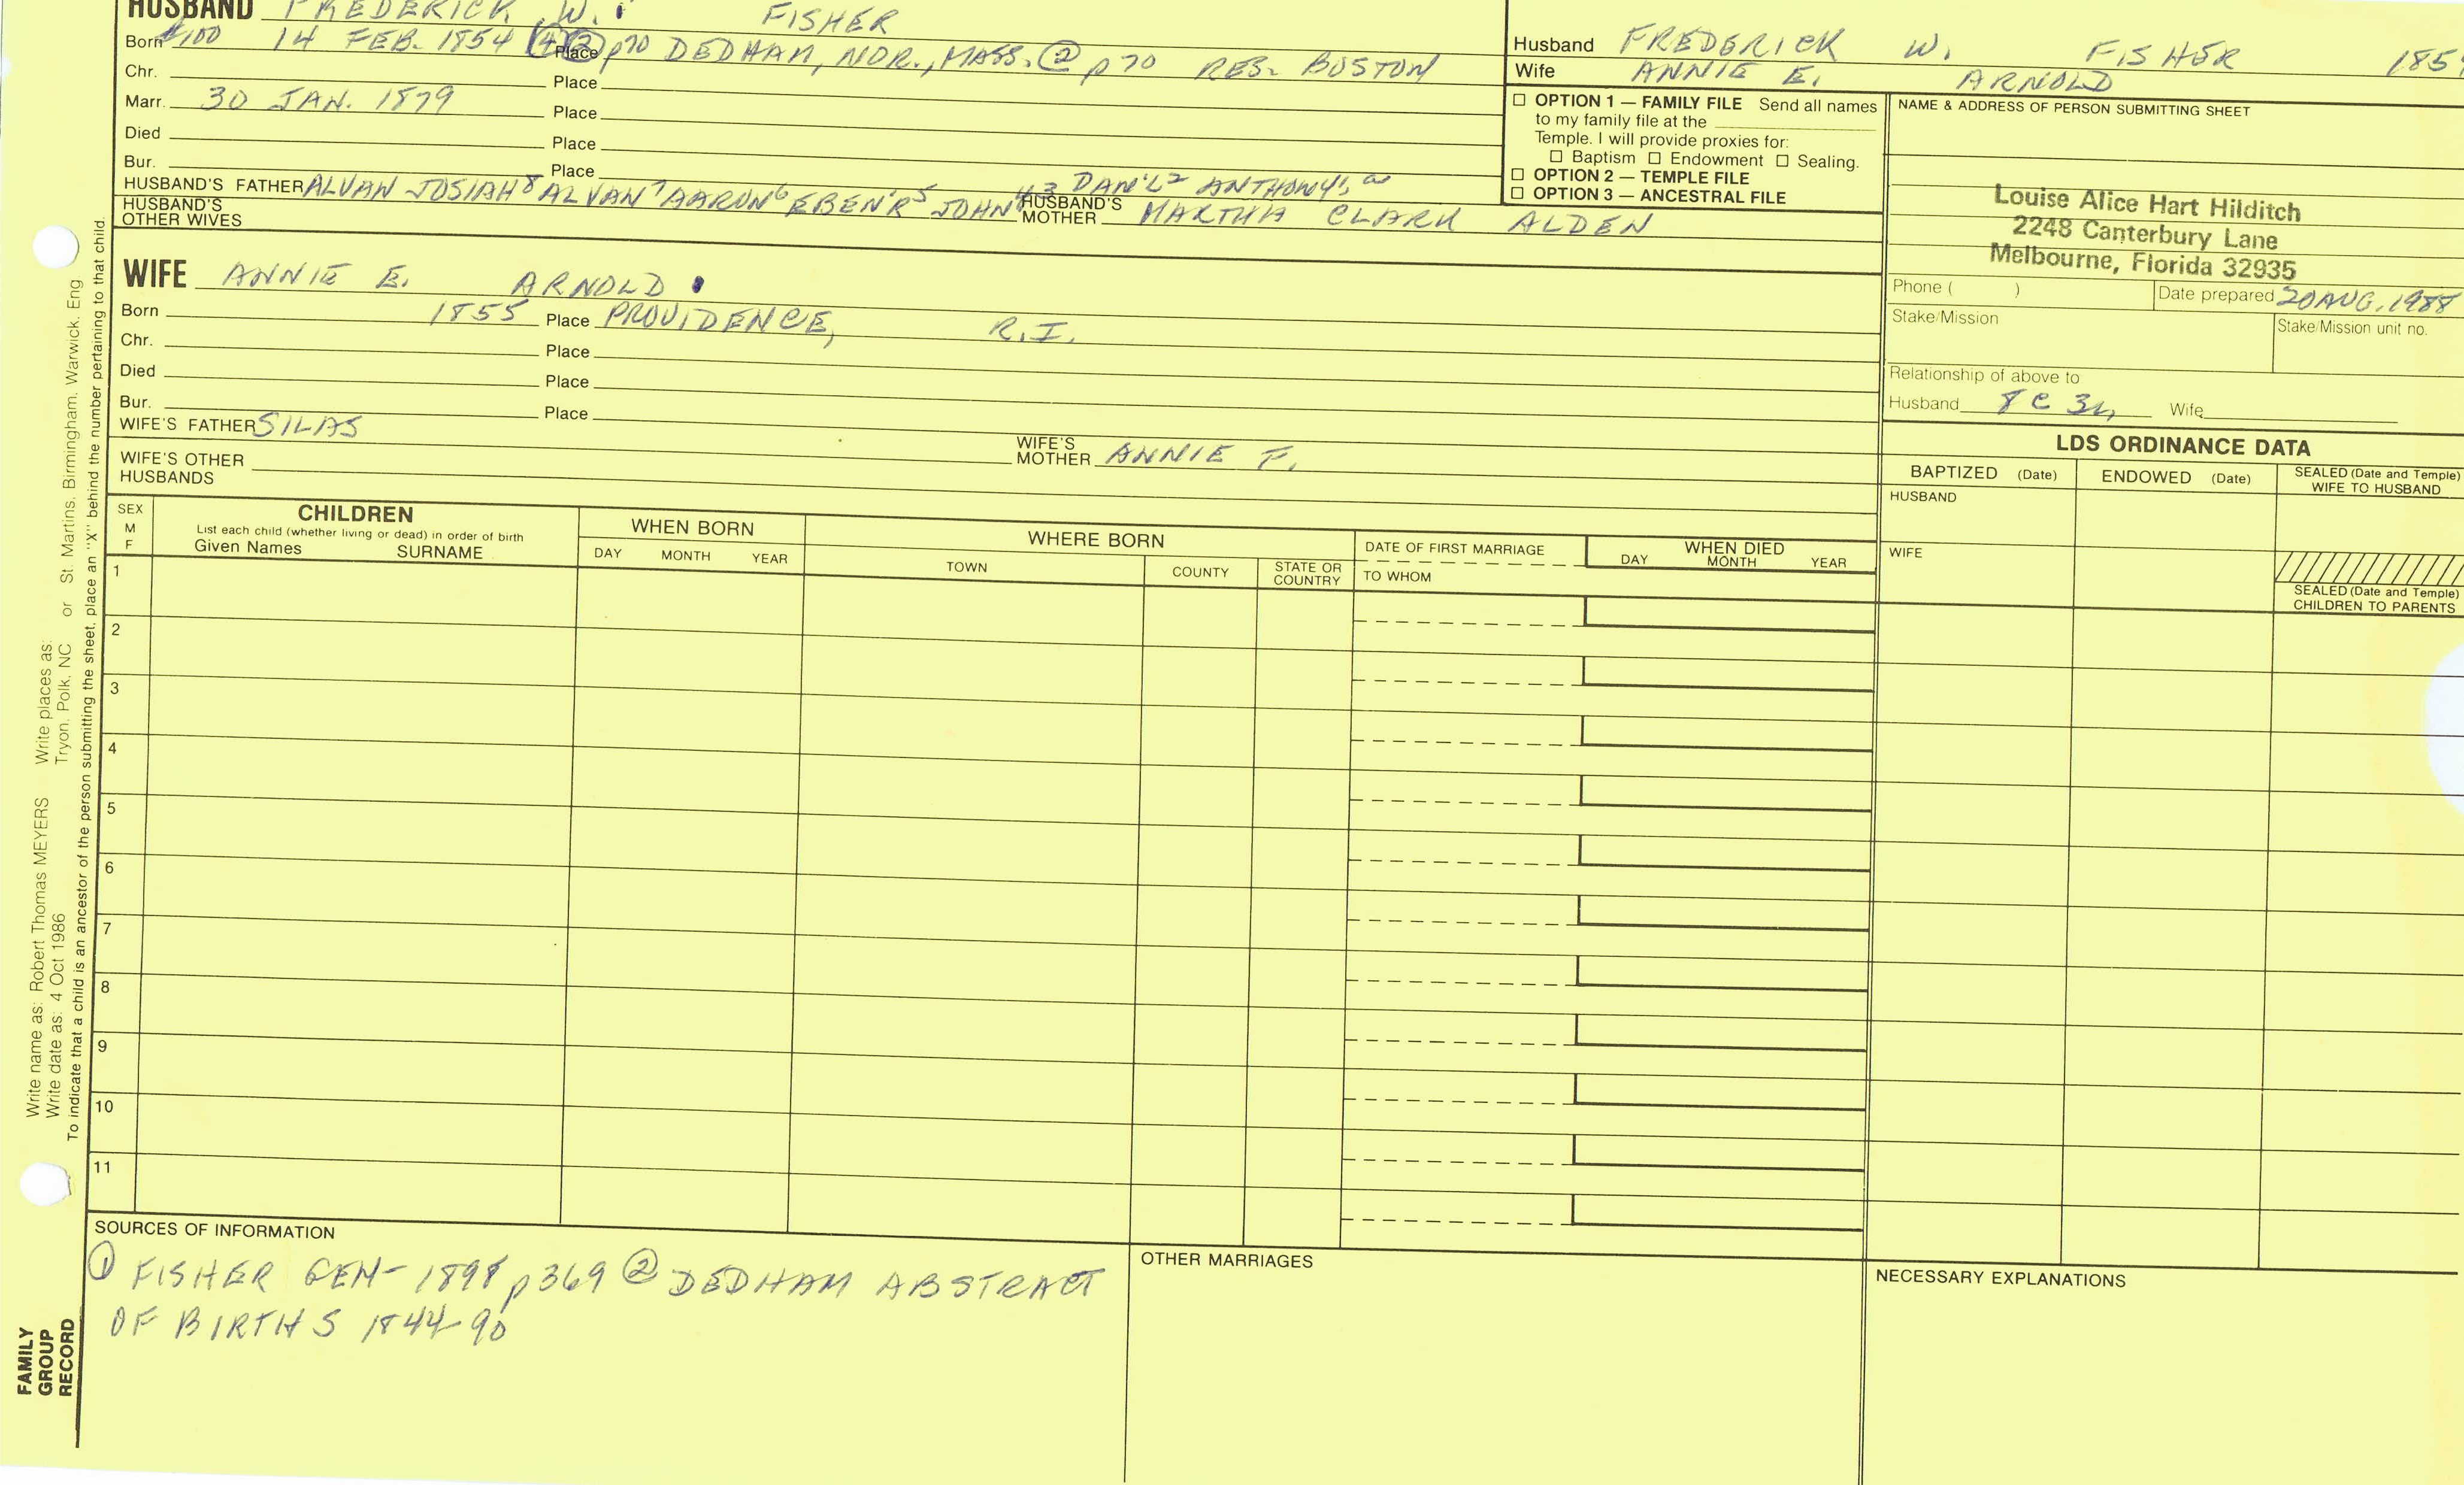 HUSBAND FREDERICK W. FISHER
Born #100 14 FEB. 1854 Place p70 DEDHAM, NOR., MASS. ② p70 RES. BOSTON
Chr. Place
Marr. 30 JAN. 1879 Place
Died Place
Bur. Place
HUSBAND'S FATHER ALVAN JOSIAH⁸ ALVAN⁷ AARON⁶ EBEN'R⁵ JOHN⁴ ³ DAN'L² ANTHONY¹
HUSBAND'S MOTHER MARTHA CLARK ALDEN
HUSBAND'S OTHER WIVES
WIFE ANNIE E. ARNOLD
Born 1855 Place PROVIDENCE, R.I.
Chr. Place
Died Place
Bur. Place
WIFE'S FATHER SILAS
WIFE'S MOTHER ANNIE F.
WIFE'S OTHER HUSBANDS
Husband FREDERICK W. FISHER 185
Wife ANNIE E. ARNOLD
☐ OPTION 1 — FAMILY FILE Send all names
to my family file at the
Temple. I will provide proxies for:
☐ Baptism ☐ Endowment ☐ Sealing.
☐ OPTION 2 — TEMPLE FILE
☐ OPTION 3 — ANCESTRAL FILE
NAME & ADDRESS OF PERSON SUBMITTING SHEET
Louise Alice Hart Hilditch
2248 Canterbury Lane
Melbourne, Florida 32935
Phone ( ) Date prepared 20 AUG. 1988
Stake/Mission Stake/Mission unit no.
Relationship of above to
Husband 8C 3R Wife
LDS ORDINANCE DATA
BAPTIZED (Date) ENDOWED (Date) SEALED (Date and Temple) WIFE TO HUSBAND
HUSBAND
WIFE
SEALED (Date and Temple)
CHILDREN TO PARENTS
SEX
M
F
CHILDREN
List each child (whether living or dead) in order of birth
Given Names SURNAME
WHEN BORN
DAY MONTH YEAR
WHERE BORN
TOWN COUNTY STATE OR COUNTRY
DATE OF FIRST MARRIAGE
TO WHOM
WHEN DIED
DAY MONTH YEAR
1
2
3
4
5
6
7
8
9
10
11
SOURCES OF INFORMATION
① FISHER GEN- 1898 p369 ② DEDHAM ABSTRACT
OF BIRTHS 1844-90
OTHER MARRIAGES
NECESSARY EXPLANATIONS
Write name as: Robert Thomas MEYERS Write places as:
Write date as: 4 Oct 1986 Tryon, Polk, NC or St. Martins, Birmingham, Warwick, Eng
To indicate that a child is an ancestor of the person submitting the sheet, place an "X" behind the number pertaining to that child.
FAMILY
GROUP
RECORD